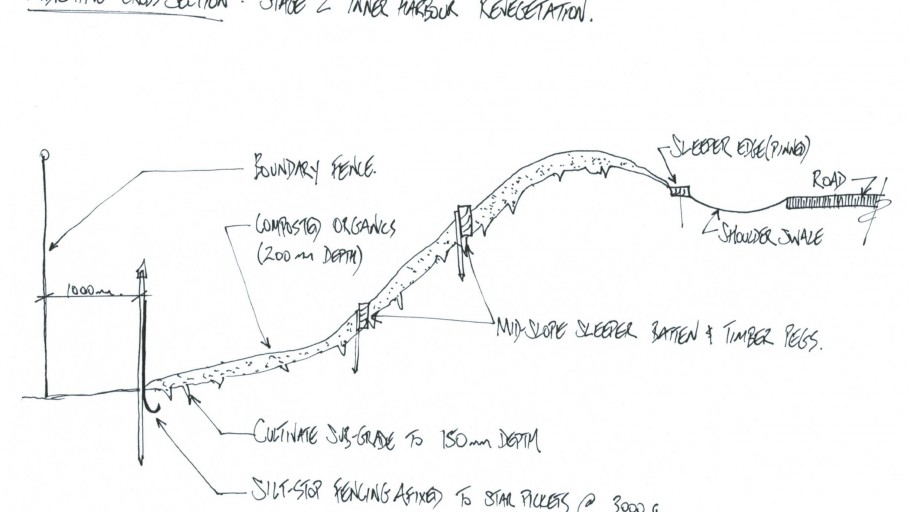 CROSS SECTION - STAGE 2 INNER HARBOUR REVEGETATION.
SLEEPER EDGE (PINNED)
BOUNDARY FENCE.
ROAD
COMPOSTED ORGANICS
(200mm DEPTH)
SHOULDER SWALE
1000mm.
MID-SLOPE SLEEPER BATTEN & TIMBER PEGS.
CULTIVATE SUB-GRADE TO 150mm DEPTH
SILT-STOP FENCING AFIXED TO STAR PICKETS @ 3000